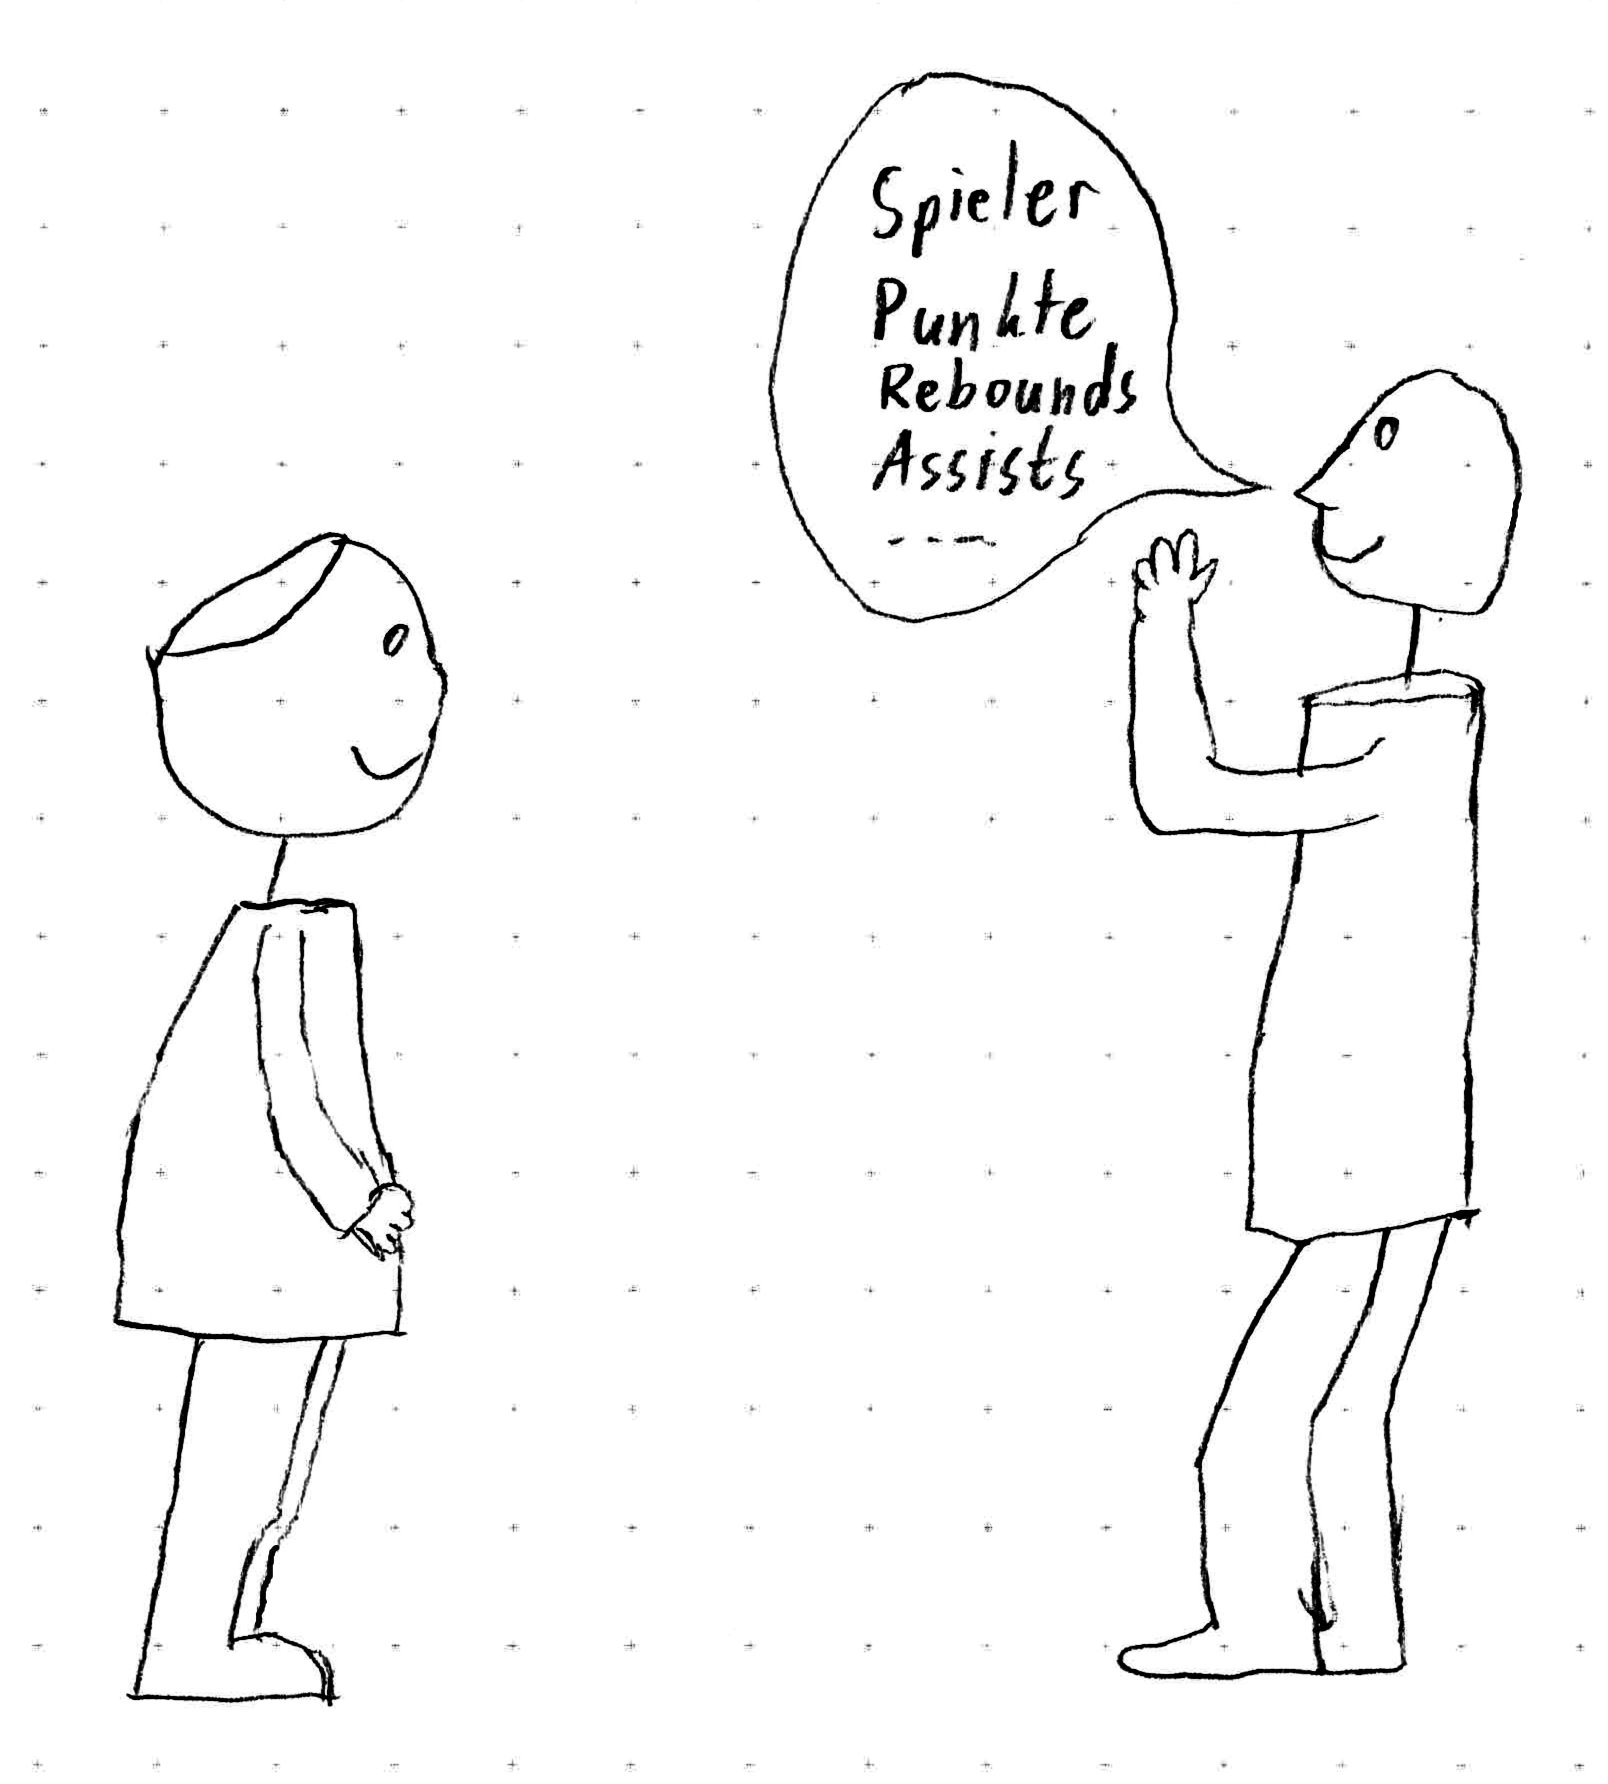 Spieler
Punkte
Rebounds
Assists
----